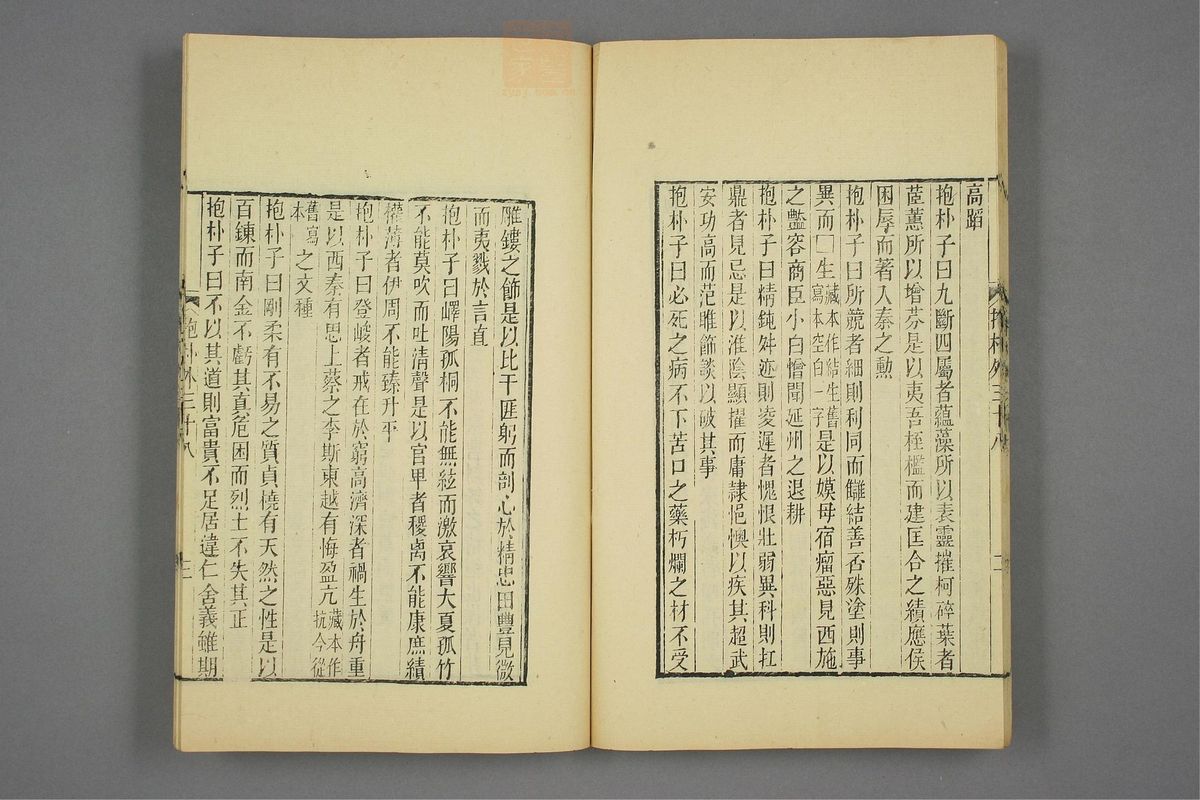 高蹈
抱朴子曰九斷四屬者蘊藻所以表靈摧柯碎葉者
茝蕙所以增芬是以夷吾桎檻而建匡合之績應侯
困辱而著入秦之勳
抱朴子曰所競者細則利同而讎結善否殊塗則事
異而□生藏本作結生舊寫本空白一字是以嫫母宿瘤惡見西施
之豔容商臣小白憎聞延州之退耕
抱朴子曰精鈍舛迹則凌遲者愧恨壯弱異科則扛
鼎者見忌是以淮陰顯擢而庸隸悒懊以疾其超武
安功高而范雎飾談以破其事
抱朴子曰必死之病不下苦口之藥朽爛之材不受
抱朴外三十八
二
雕鏤之飾是以比干匪躬而剖心於精忠田豐見微
而夷戮於言直
抱朴子曰嶧陽孤桐不能無絃而激哀響大夏孤竹
不能莫吹而吐清聲是以官卑者稷离不能康庶績
權薄者伊周不能臻升平
抱朴子曰登峻者戒在於窮高濟深者禍生於舟重
是以西秦有思上蔡之李斯東越有悔盈亢藏本作抗今從
舊寫本之文種
抱朴子曰剛柔有不易之質貞橈有天然之性是以
百鍊而南金不虧其真危困而烈士不失其正
抱朴子曰不以其道則富貴不足居違仁舍義雖期
抱朴外三十八